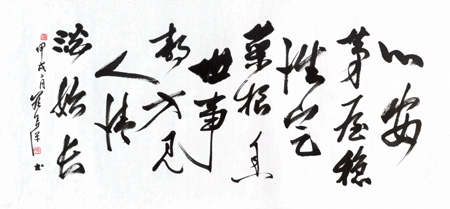 心安
茅屋穩
性定
菜根香
世事
静方见
人情
淡始长
甲戌 月 书